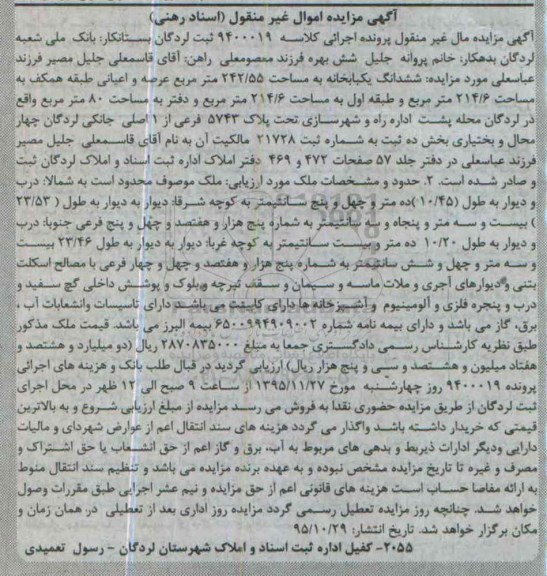 آگهی مزایده اموال غیر منقول (اسناد رهنی)
آگهی مزایده مال غیر منقول پرونده اجرائی کلاسه ۹۴۰۰۰۱۹ ثبت لردگان بستانکار: بانک ملی شعبه
لردگان بدهکار: خانم پروانه جلیل شش بهره فرزند معصومعلی راهن: آقای قاسمعلی جلیل مصیر فرزند
عباسعلی مورد مزایده: ششدانگ یکبابخانه به مساحت ۲۴۲/۵۵ متر مربع عرصه و اعیانی طبقه همکف به
مساحت ۲۱۴/۶ متر مربع و طبقه اول به مساحت ۲۱۴/۶ متر مربع و دفتر به مساحت ۸۰ متر مربع واقع
در لردگان محله پشت اداره راه و شهرسازی تحت پلاک ۵۷۴۳ فرعی از ۱ اصلی جانکی لردگان چهار
محال و بختیاری بخش ده ثبت به شماره ثبت ۲۱۷۲۸ مالکیت آن به نام آقای قاسمعلی جلیل مصیر
فرزند عباسعلی در دفتر جلد ۵۷ صفحات ۴۷۲ و ۴۶۹ دفتر املاک اداره ثبت اسناد و املاک لردگان ثبت
و صادر شده است. ۲. حدود و مشخصات ملک مورد ارزیابی: ملک موصوف محدود است به شمالا: درب
و دیوار به طول (۱۰/۴۵) ده متر و چهل و پنج سانتیمتر به کوچه شرقا: دیوار به دیوار به طول ( ۲۳/۵۳
) بیست و سه متر و پنجاه و سه سانتیمتر به شماره پنج هزار و هفتصد و چهل و پنج فرعی جنوبا: درب
و دیوار به طول ۱۰/۲۰ ده متر و بیست سانتیمتر به کوچه غربا: دیوار به دیوار به طول ۲۳/۴۶ بیست
و سه متر و چهل و شش سانتیمتر به شماره پنج هزار و هفتصد و چهل و چهار فرعی با مصالح اسکلت
بتنی و دیوارهای آجری و ملات ماسه و سیمان و سقف تیرچه و بلوک و پوشش داخلی گچ سفید و
درب و پنجره فلزی و آلومینیوم و آشپزخانه ها دارای کابینت می باشد دارای تاسیسات وانشعابات آب ،
برق، گاز می باشد و دارای بیمه نامه شماره ۶۵۰۰۹۹۴۹۰۹۰۰۲ بیمه البرز می باشد. قیمت ملک مذکور
طبق نظریه کارشناس رسمی دادگستری جمعا به مبلغ ۲۸۷۰۸۳۵۰۰۰ ریال (دو میلیارد و هشتصد و
هفتاد میلیون و هشتصد و سی و پنج هزار ریال) ارزیابی گردید در قبال طلب بانک و هزینه های اجرائی
پرونده ۹۴۰۰۰۱۹ روز چهارشنبه مورخ ۱۳۹۵/۱۱/۲۷ از ساعت ۹ صبح الی ۱۲ ظهر در محل اجرای
ثبت لردگان از طریق مزایده حضوری نقدا به فروش می رسد مزایده از مبلغ ارزیابی شروع و به بالاترین
قیمتی که خریدار داشته باشد واگذار می گردد هزینه های سند انتقال اعم از عوارض شهردای و مالیات
دارایی ودیگر ادارات ذیربط و بدهی های مربوط به آب، برق و گاز اعم از حق انشعاب یا حق اشتراک و
مصرف و غیره تا تاریخ مزایده مشخص نبوده و به عهده برنده مزایده می باشد و تنظیم سند انتقال منوط
به ارائه مفاصا حساب است هزینه های قانونی اعم از حق مزایده و نیم عشر اجرایی طبق مقررات وصول
خواهد شد. چنانچه روز مزایده تعطیل رسمی گردد مزایده روز اداری بعد از تعطیلی در همان زمان و
مکان برگزار خواهد شد. تاریخ انتشار: ۹۵/۱۰/۲۹
۲۰۵۵- کفیل اداره ثبت اسناد و املاک شهرستان لردگان - رسول تعمیدی